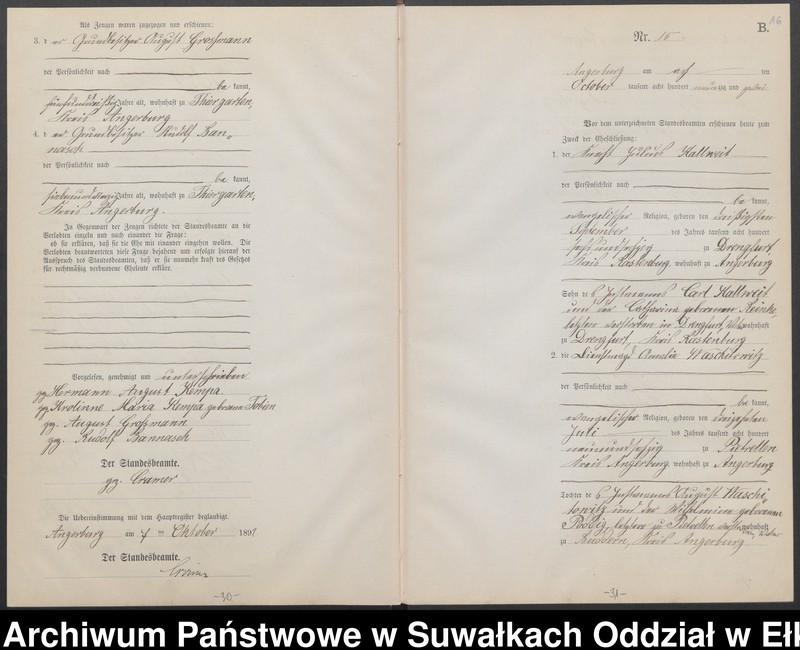 Als Zeugen waren zugezogen und erschienen:
3. der Grundbesitzer August Großmann
der Persönlichkeit nach
be kannt,
fünfunddreißig Jahre alt, wohnhaft zu Thiergarten,
Kreis Angerburg
4. der Grundbesitzer Rudolf Ban-
nasch
der Persönlichkeit nach
be kannt,
Jahre alt, wohnhaft zu Thiergarten,
Kreis Angerburg.
In Gegenwart der Zeugen richtete der Standesbeamte an die
Verlobten einzeln und nach einander die Frage:
ob sie erklären, daß sie die Ehe mit einander eingehen wollen. Die
Verlobten beantworteten diese Frage bejahend und erfolgte hierauf der
Ausspruch des Standesbeamten, daß er sie nunmehr kraft des Gesetzes
für rechtmäßig verbundene Eheleute erkläre.
Vorgelesen, genehmigt und unterschrieben
gez. Hermann August Kempa
gez. Karolinne Maria Kempa geborene Tobien
gez. August Großmann
gez. Rudolf Bannasch
Der Standesbeamte.
gez. Cramer
Die Uebereinstimmung mit dem Hauptregister beglaubigt.
Angerburg am 7 ten Oktober 189
Der Standesbeamte.
Cramer
-30-
B.
Nr. 16
Angerburg am acht ten
October tausend acht hundert neunzig und
Vor dem unterzeichneten Standesbeamten erschienen heute zum
Zweck der Eheschließung:
1. der Knecht Julius Kallweit
der Persönlichkeit nach
be kannt,
evangelischer Religion, geboren den dreißigsten
September des Jahres tausend acht hundert
zu Drengfurt,
Kreis Rastenburg, wohnhaft zu Angerburg
Sohn des Instmanns Carl Kallweit
und der Catharina geborenen Reinke,
letztere verstorben in Drengfurt, wohnhaft
zu Drengfurt, Kreis Rastenburg
2. die Dienstmagd Amalie Waschitowitz
der Persönlichkeit nach
be kannt,
evangelischer Religion, geboren den dreizehnten
Juli des Jahres tausend acht hundert
neunundsechzig zu Pietrellen
Kreis Angerburg, wohnhaft zu Angerburg
Tochter des Instmanns August Waschi-
towitz und der Wilhelmine geborenen
letztere zu wohnhaft
zu Kreis Angerburg
-31-
Archiwum Państwowe w Suwałkach Oddział w Ełk